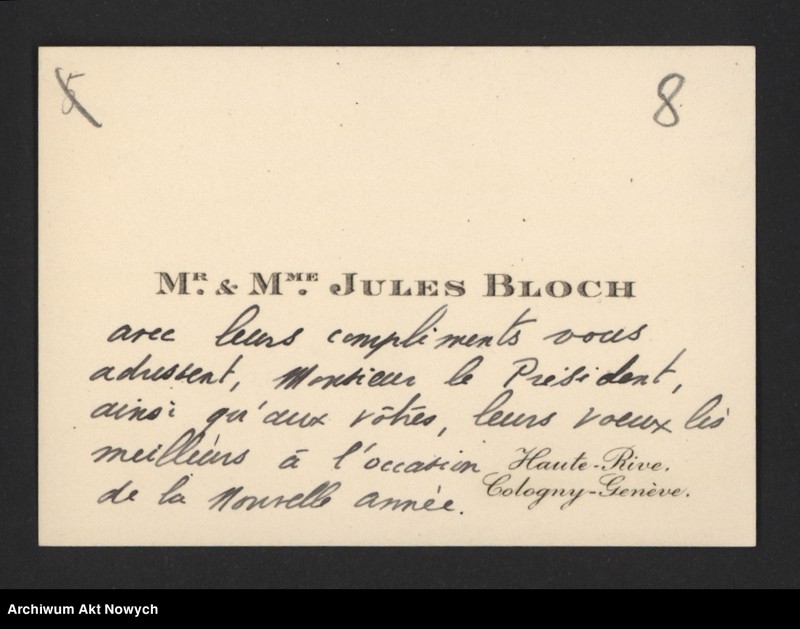 5
8
MR. & MME. JULES BLOCH
avec leurs compliments vous
adressent, Monsieur le Président,
ainsi qu'aux vôtres, leurs voeux les
meilleurs à l'occasion
de la Nouvelle année.
Haute-Rive.
Cologny-Genève.
Archiwum Akt Nowych